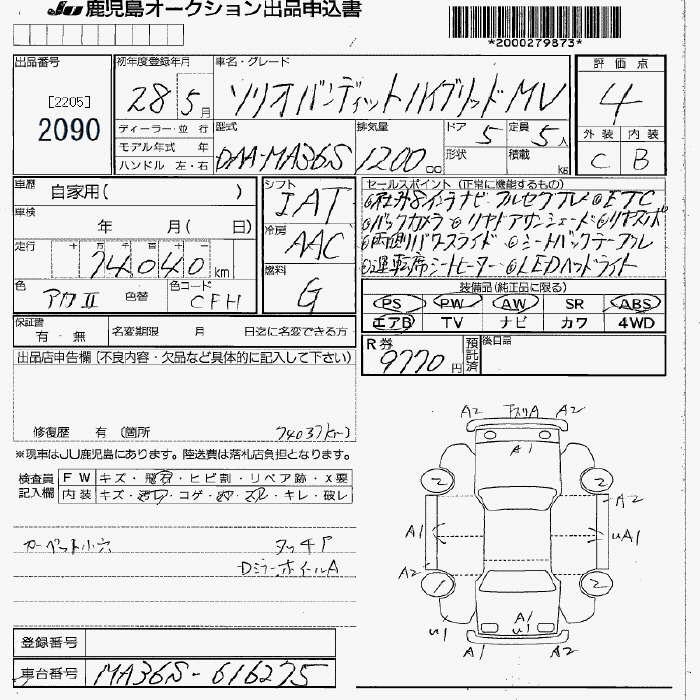 JU 鹿児島オークション出品申込書
*2000279873*
出品番号
[2205]
2090
初年度登録年月
28 5月
車名・グレード
ソリオバンディットハイブリッドMV
評価点
4
外装 内装
C B
ディーラー・並行
モデル年式 年
ハンドル 左・右
型式
DAA-MA36S
排気量
1200cc
ドア 5
形状
定員 5人
積載 kg
車歴
自家用( )
車検
年 月( 日)
走行 十 万 千 百 十 一
74040 km
色
アカII 色替
色コード
CFH
シフト
IAT
冷房
AAC
燃料
G
セールスポイント (正常に機能するもの)
◎社外8インチナビ フルセグTV ◎ETC
◎バックカメラ ◎リヤドアサンシェード ◎リヤスポ
◎両側パワースライド ◎シートバックテーブル
◎運転席シートヒーター ◎LEDヘッドライト
装備品(純正品に限る)
PS PW AW SR ABS
エアB TV ナビ カワ 4WD
保証書
有・無
名変期限 月 日迄に名変できる方
R券
9770円
預託済
後日品
出品店申告欄(不良内容・欠品など具体的に記入して下さい)
修復歴 有 (箇所
74037km)
※現車はJU鹿児島にあります。陸送費は落札店負担となります。
検査員
記入欄
FW キズ・飛石・ヒビ割・リペア跡・X要
内装 キズ・汚れ・コゲ・穴・スレ・キレ・破レ
カーペット小穴 タッチア
DミラーホイールA
A2 下スリA A2
A1
2 2
A2
A1 uA1
A2
1 2
u1 A1 u1
A1 A1
登録番号
車台番号 MA36S-616275